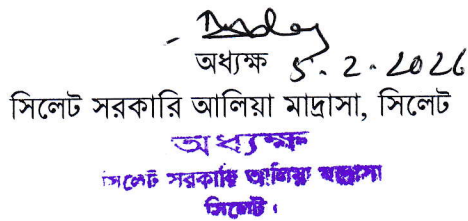 অধ্যক্ষ 5.2.2026
সিলেট সরকারি আলিয়া মাদ্রাসা, সিলেট
অধ্যক্ষ
সিলেট সরকারি আলিয়া মাদ্রাসা
সিলেট।